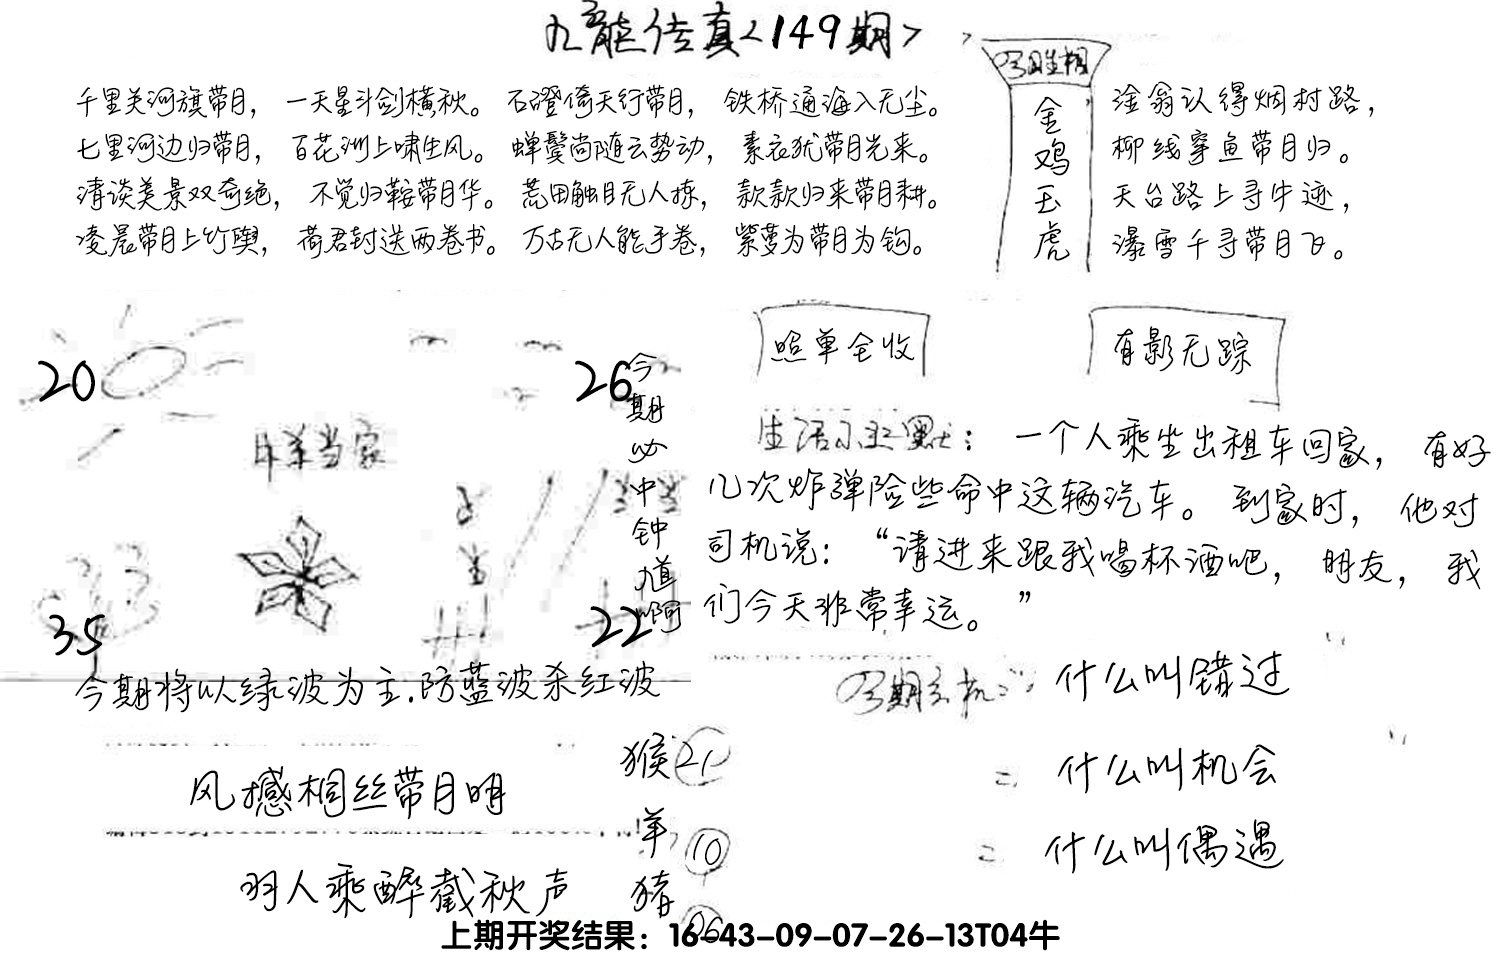 九龙传真<149期>
千里关河旗带月，一天星斗剑横秋。石磴倚天行带月，铁桥通海入无尘。
七里河边归带月，百花洲上啸生风。蝉鬓尚随云势动，素衣犹带月光来。
清谈美景双奇绝，不觉归鞍带月华。荒田触目无人拣，款款归来带月耕。
凌晨带月上竹舆，荷君封送两卷书。万古无人能手卷，紫萝为带月为钩。
金鸡玉虎
淦翁认得烟村路，
柳线穿鱼带月归。
天台路上寻牛迹，
瀑雪千寻带月飞。
20
26
35
22
今期必中钟道啊
照单全收
有影无踪
生活幽默：一个人乘坐出租车回家，有好
几次炸弹险些命中这辆汽车。到家时，他对
司机说：“请进来跟我喝杯酒吧，朋友，我
们今天非常幸运。”
今期将以绿波为主.防蓝波杀红波
风撼桐丝带月明
羽人乘醉截秋声
猴 21
羊 10
猪 06
什么叫错过
= 什么叫机会
= 什么叫偶遇
上期开奖结果：16-43-09-07-26-13T04牛